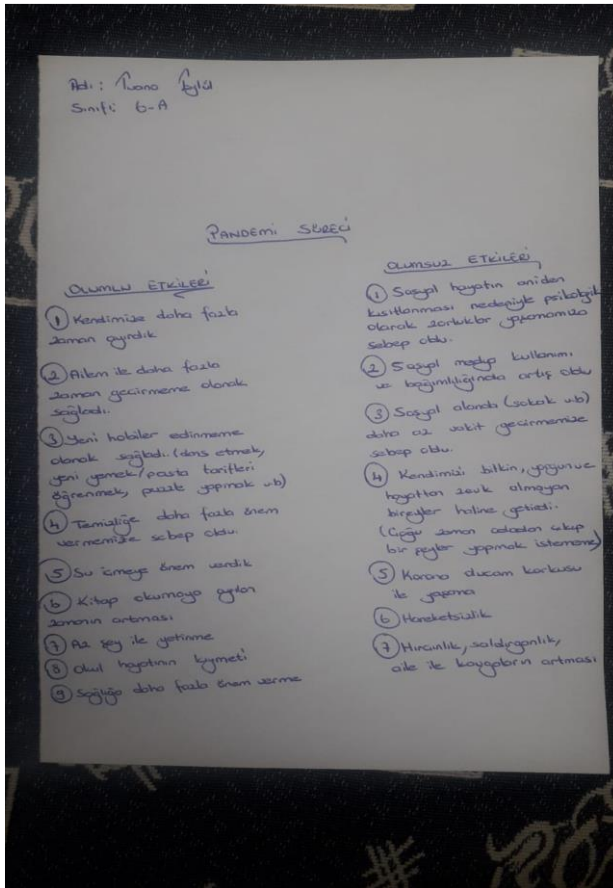 Adı: Tuana Eylül
Sınıfı: 6-A
PANDEMİ SÜRECİ
OLUMLU ETKİLERİ
1 Kendimize daha fazla
zaman ayırdık
2 Ailem ile daha fazla
zaman geçirmeme olanak
sağladı.
3 Yeni hobiler edinmeme
olanak sağladı. (dans etmek,
yeni yemek/pasta tarifleri
öğrenmek, puzzle yapmak v.b)
4 Temizliğe daha fazla önem
vermemize sebep oldu.
5 Su içmeye önem verdik
6 Kitap okumaya ayrılan
zamanın artması
7 Az şey ile yetinme
8 Okul hayatının kıymeti
9 Sağlığa daha fazla önem verme
OLUMSUZ ETKİLERİ
1 Sosyal hayatın aniden
kısıtlanması nedeniyle psikolojik
olarak zorluklar yaşamamıza
sebep oldu.
2 Sosyal medya kullanımı
ve bağımlılığında artış oldu
3 Sosyal alanda (sokak v.b)
daha az vakit geçirmemize
sebep oldu.
4 Kendimizi bitkin, yorgun ve
hayattan zevk almayan
bireyler haline getirdi.
(Çoğu zaman odadan çıkıp
bir şeyler yapmak istememe)
5 Korona olucam korkusu
ile yaşama
6 Hareketsizlik
7 Hırçınlık, saldırganlık,
aile ile kavgaların artması